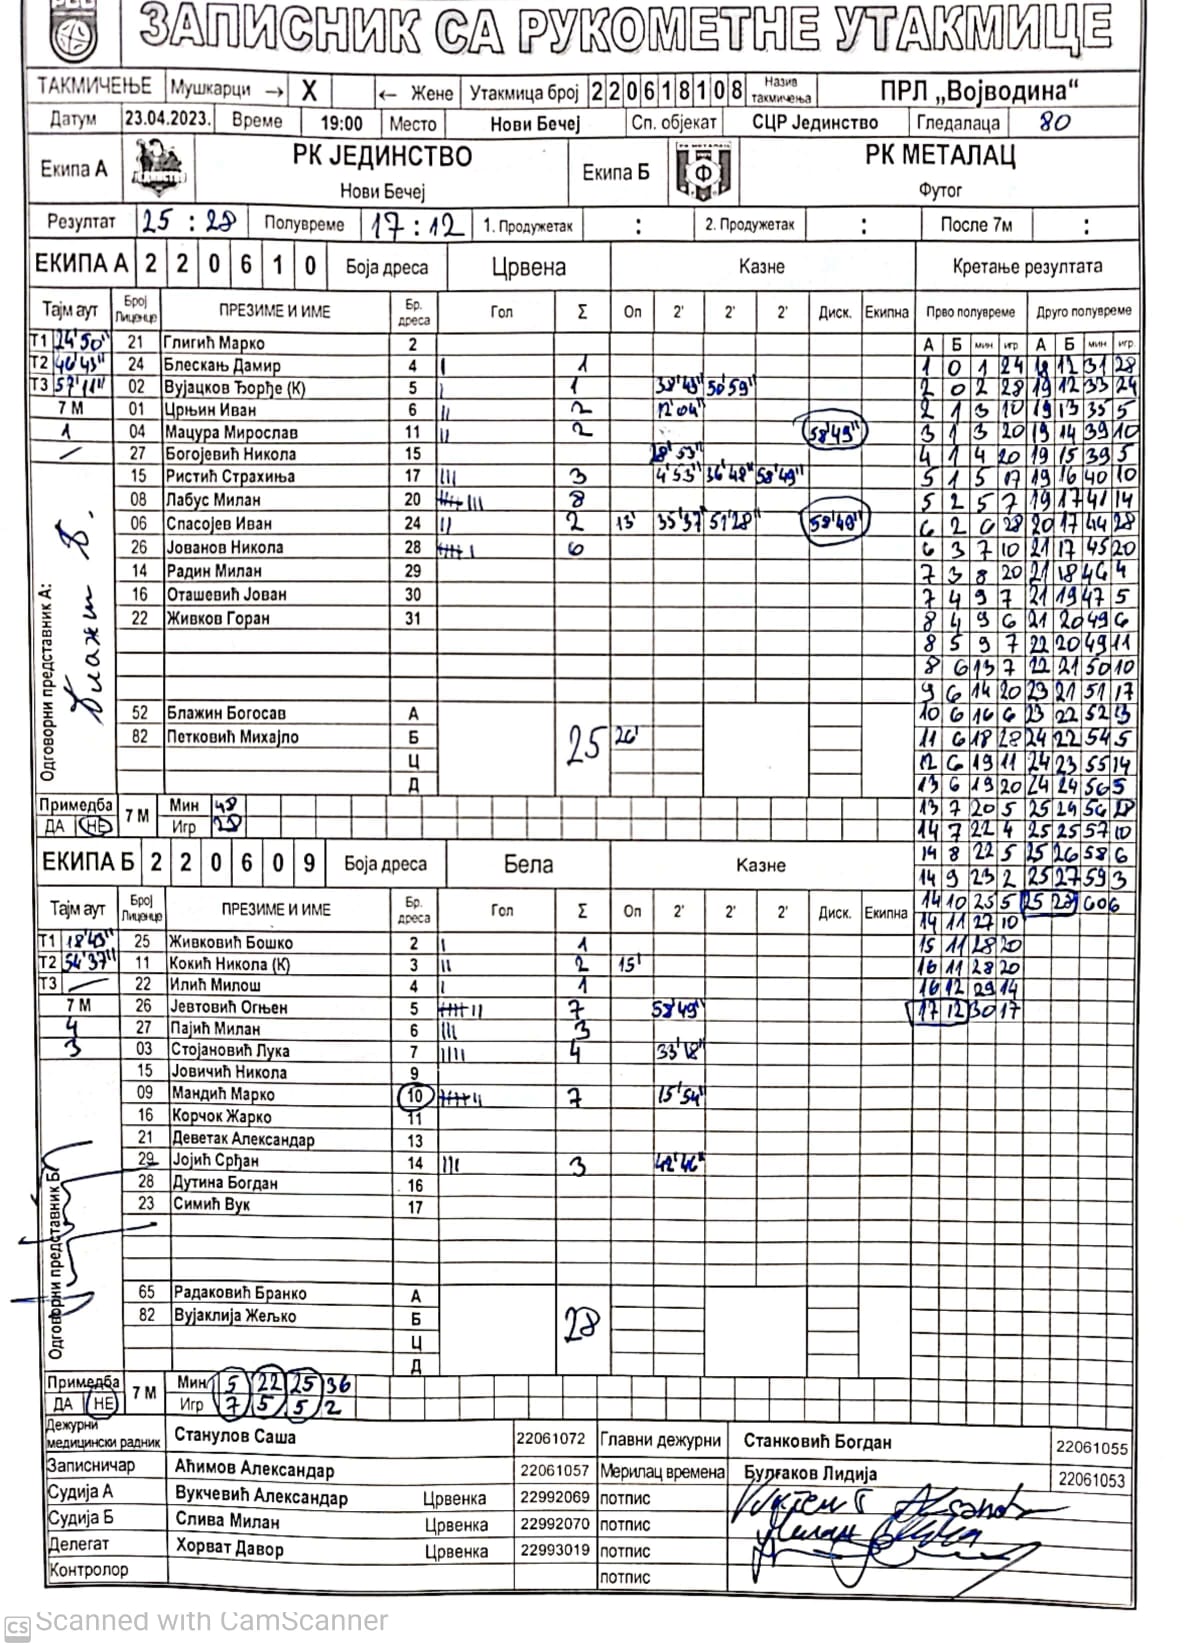 ЗАПИСНИК СА РУКОМЕТНЕ УТАКМИЦЕ
ТАКМИЧЕЊЕ Мушкарци → X ← Жене Утакмица број 220618108 Назив такмичења ПРЛ „Војводина“
Датум 23.04.2023. Време 19:00 Место Нови Бечеј Сп. објекат СЦР Јединство Гледалаца 80
Екипа А РК ЈЕДИНСТВО Нови Бечеј Екипа Б РК МЕТАЛАЦ Футог
Резултат 25 : 28 Полувреме 17 : 12 1. Продужетак : 2. Продужетак : После 7м :
ЕКИПА А 2 2 0 6 1 0 Боја дреса Црвена Казне Кретање резултата
Тајм аут Број Лиценце ПРЕЗИМЕ И ИМЕ Бр. дреса Гол Σ Оп 2' 2' 2' Диск. Екипна Прво полувреме Друго полувреме
А Б мин игр А Б мин игр
Т1 24'50" 21 Глигић Марко 2
Т2 46'43" 24 Блескањ Дамир 4 I 1 1 0 1 24 18 12 31 28
Т3 57'11" 02 Вујацков Ђорђе (К) 5 I 1 38'43" 50'59" 2 0 2 28 19 12 33 24
7 М 01 Црњин Иван 6 II 2 12'04" 2 1 3 10 19 13 35 5
1 04 Мацура Мирослав 11 II 2 58'49" 3 1 3 20 19 14 39 10
/ 27 Богојевић Никола 15 28'53" 4 1 4 20 19 15 39 5
15 Ристић Страхиња 17 III 3 4'53" 36'48" 58'49" 5 1 5 17 19 16 40 10
08 Лабус Милан 20 IIIII III 8 5 2 5 7 19 17 41 14
06 Спасојев Иван 24 II 2 13' 35'37" 51'28" 58'49" 6 2 6 28 20 17 44 28
26 Јованов Никола 28 IIIII I 6 6 3 7 10 21 17 45 20
14 Радин Милан 29 7 3 8 20 21 18 46 4
16 Оташевић Јован 30 7 4 9 7 21 19 47 5
22 Живков Горан 31 8 4 9 6 21 20 49 6
8 5 9 7 22 20 49 11
8 6 13 7 22 21 50 10
9 6 14 20 23 21 51 17
52 Блажин Богосав А 10 6 16 6 23 22 52 3
82 Петковић Михајло Б 25 26' 11 6 18 28 24 22 54 5
Ц 12 6 19 11 24 23 55 14
Д 13 6 19 20 24 24 56 5
Одговорни представник А:
Примедба 7 М Мин 48 13 7 20 5 25 24 56 28
ДА НЕ Игр 28 14 7 22 4 25 25 57 10
ЕКИПА Б 2 2 0 6 0 9 Боја дреса Бела Казне 14 8 22 5 25 26 58 6
14 9 23 2 25 27 59 3
Тајм аут Број Лиценце ПРЕЗИМЕ И ИМЕ Бр. дреса Гол Σ Оп 2' 2' 2' Диск. Екипна 14 10 25 5 25 28 60 6
14 11 27 10
Т1 18'43" 25 Живковић Бошко 2 I 1 15 11 28 20
Т2 54'37" 11 Кокић Никола (К) 3 II 2 15' 16 11 28 20
Т3 — 22 Илић Милош 4 I 1 16 12 29 14
7 М 26 Јевтовић Огњен 5 IIIII II 7 58'49" 17 12 30 17
4 27 Пајић Милан 6 III 3
3 03 Стојановић Лука 7 IIII 4 33'18"
15 Јовичић Никола 9
09 Мандић Марко 10 IIIII II 7 15'54"
16 Корчок Жарко 11
21 Деветак Александар 13
29 Јојић Срђан 14 III 3 42'46"
28 Дутина Богдан 16
23 Симић Вук 17
Одговорни представник Б:
65 Радаковић Бранко А
82 Вујаклија Жељко Б 28
Ц
Д
Примедба 7 М Мин 5 22 25 36
ДА НЕ Игр 7 5 5 2
Дежурни медицински радник Станулов Саша 22061072 Главни дежурни Станковић Богдан 22061055
Записничар Аћимов Александар 22061057 Мерилац времена Булгаков Лидија 22061053
Судија А Вукчевић Александар Црвенка 22992069 потпис
Судија Б Слива Милан Црвенка 22992070 потпис
Делегат Хорват Давор Црвенка 22993019 потпис
Контролор потпис
CS Scanned with CamScanner